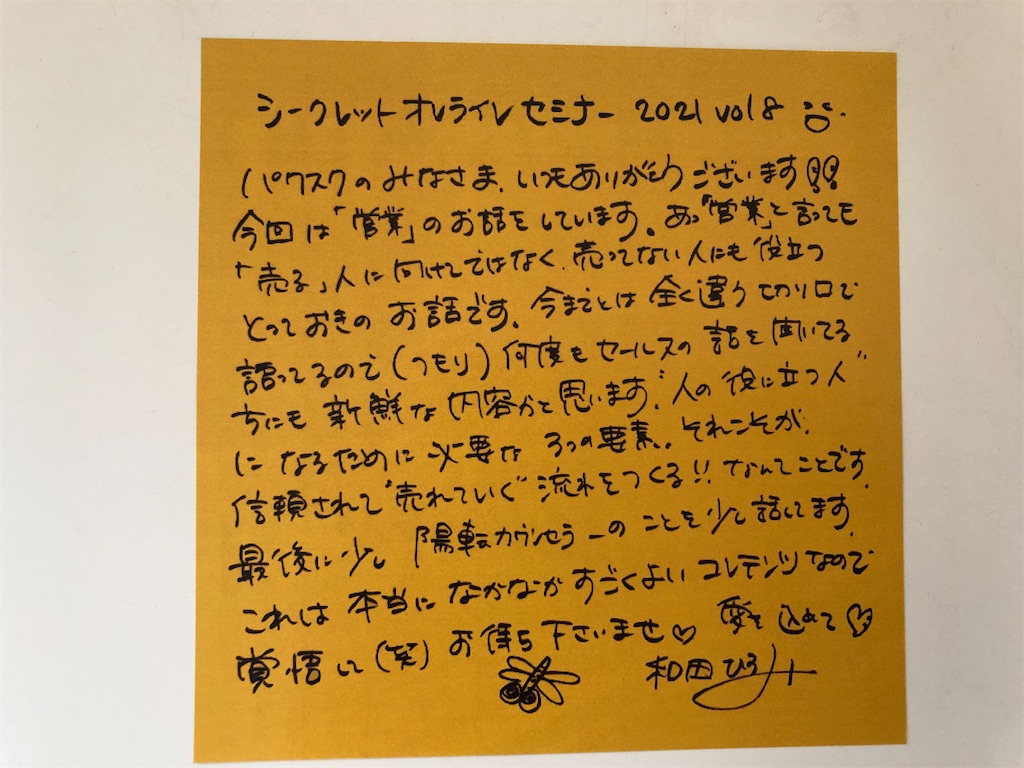 シークレットオンラインセミナー 2021 vol 8
パワスクのみなさま、いつもありがとうございます!!
今回は「営業」のお話をしています。あっ「営業」と言っても
「売る」人に向けてではなく、売ってない人にも役立つ
とっておきのお話です。今までとは全く違う切り口で
語ってるので(つもり)何度もセールスの話を聞いてる
方にも新鮮な内容かと思います。"人の役に立つ人"
になるために必要な3つの要素。それこそが、
信頼されて"売れていく"流れをつくる!!なんてことです。
最後に少し陽転カウンセラーのことを少し話してます。
これは本当になかなかすごくよいコンテンツなので
覚悟して(笑)お待ち下さいませ♡ 愛を込めて♡
和田ひろみ